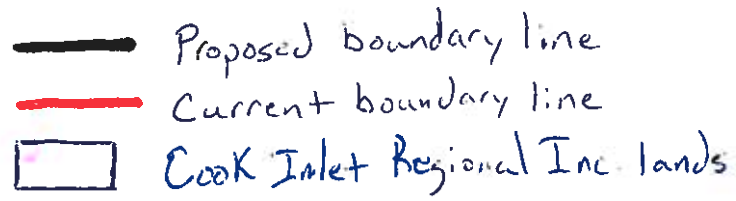 Proposed boundary line
Current boundary line
Cook Inlet Regional Inc lands